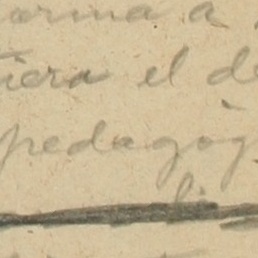 arma a
iera el de
pedagóg